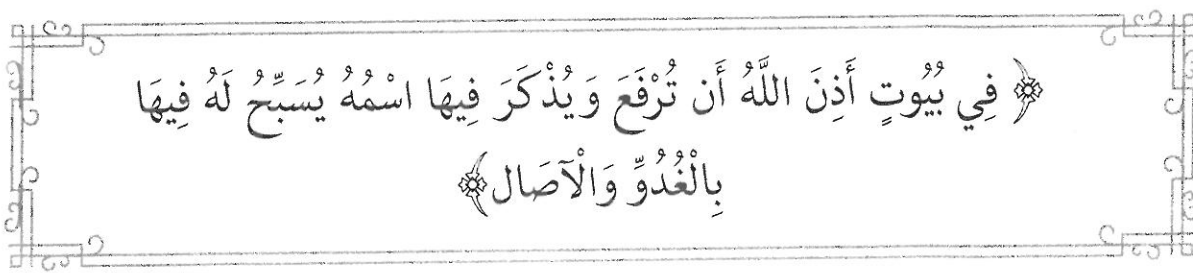 ﴿ فِي بُيُوتٍ أَذِنَ اللَّهُ أَن تُرْفَعَ وَيُذْكَرَ فِيهَا اسْمُهُ يُسَبِّحُ لَهُ فِيهَا
بِالْغُدُوِّ وَالْآصَال﴾